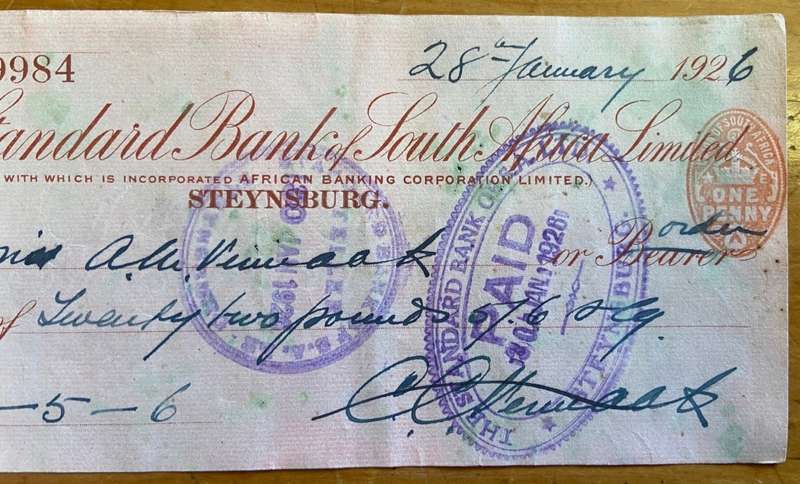 9984
28th January 1926
Standard Bank of South Africa Limited
WITH WHICH IS INCORPORATED AFRICAN BANKING CORPORATION LIMITED.)
STEYNSBURG.
A.M. Vermaak or Bearer
order
of Twenty two pounds 5/6 stg
-5-6
C C Vermaak
THE STANDARD BANK OF
PAID
30 JAN 1926
STEYNSBURG.
30 JAN 192
OF SOUTH AFRICA
ONE PENNY